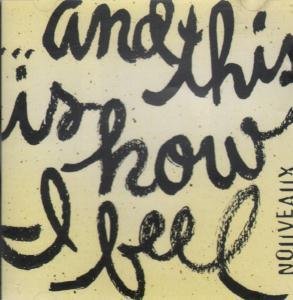 ...and this
is
how
I feel
NOUVEAUX